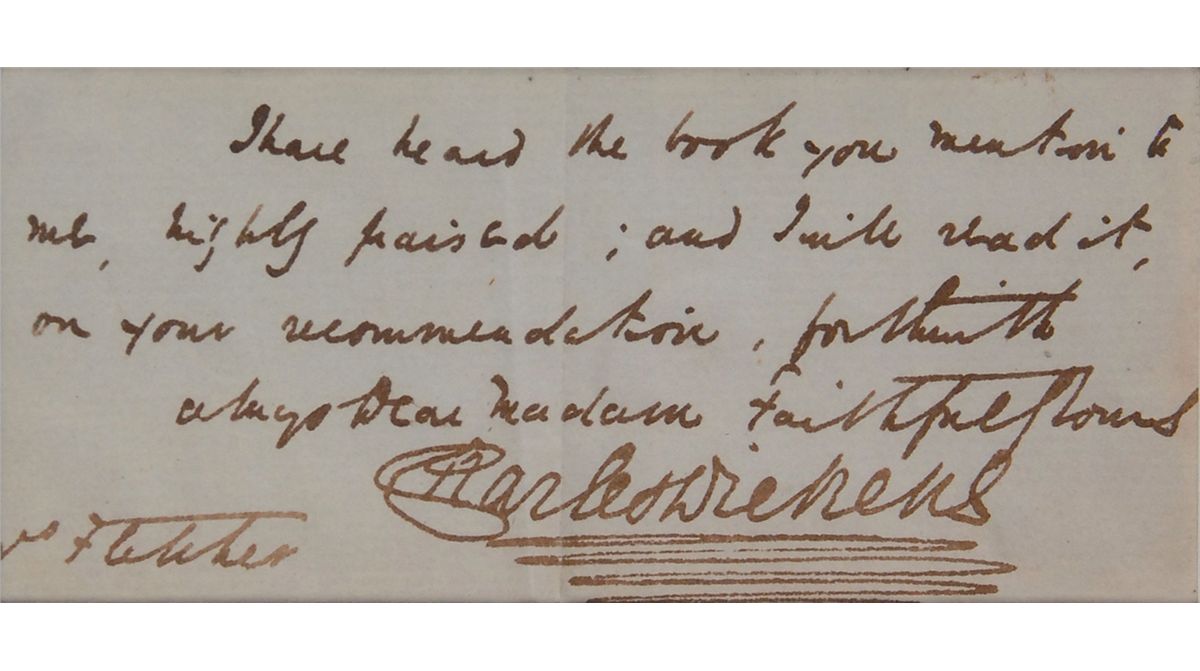 I have heard the book you mention to
me, highly praised ; and I will read it,
on your recommendation, forthwith
always Dear Madam Faithfully Yours
Charles Dickens
rs Fletcher